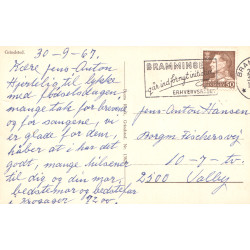 Grindsted.
30-9-67.
Kære Jens-Anton
Hjertelig til lykke
med fødselsdagen,
mange tak for brevene
og for sangene, vi
er glade for dem,
håber at i har det
godt, mange hilsener
til dig og din mor,
bedstemor og bedstefar
Krosager 192.00.
BRAMMINGE
går ind for nyt initiativ
ERHVERVSRÅDET
BRAM
50
Jens-Anton Hansen
Borgm Fischersvej
10-7-tv.
2500 Valby